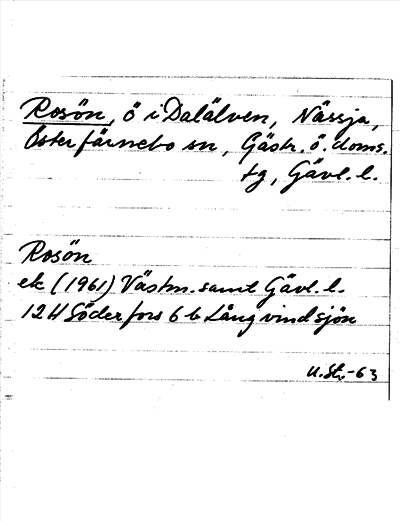 Rosön, ö i Dalälven, Nässja,
Österfärnebo sn, Gästr. ö. doms.
tg, Gävl. l.
Rosön
ek (1961) Västm. samt Gävl. l.
12 H Söderfors 6 b Långvindsjön
U.St.-63